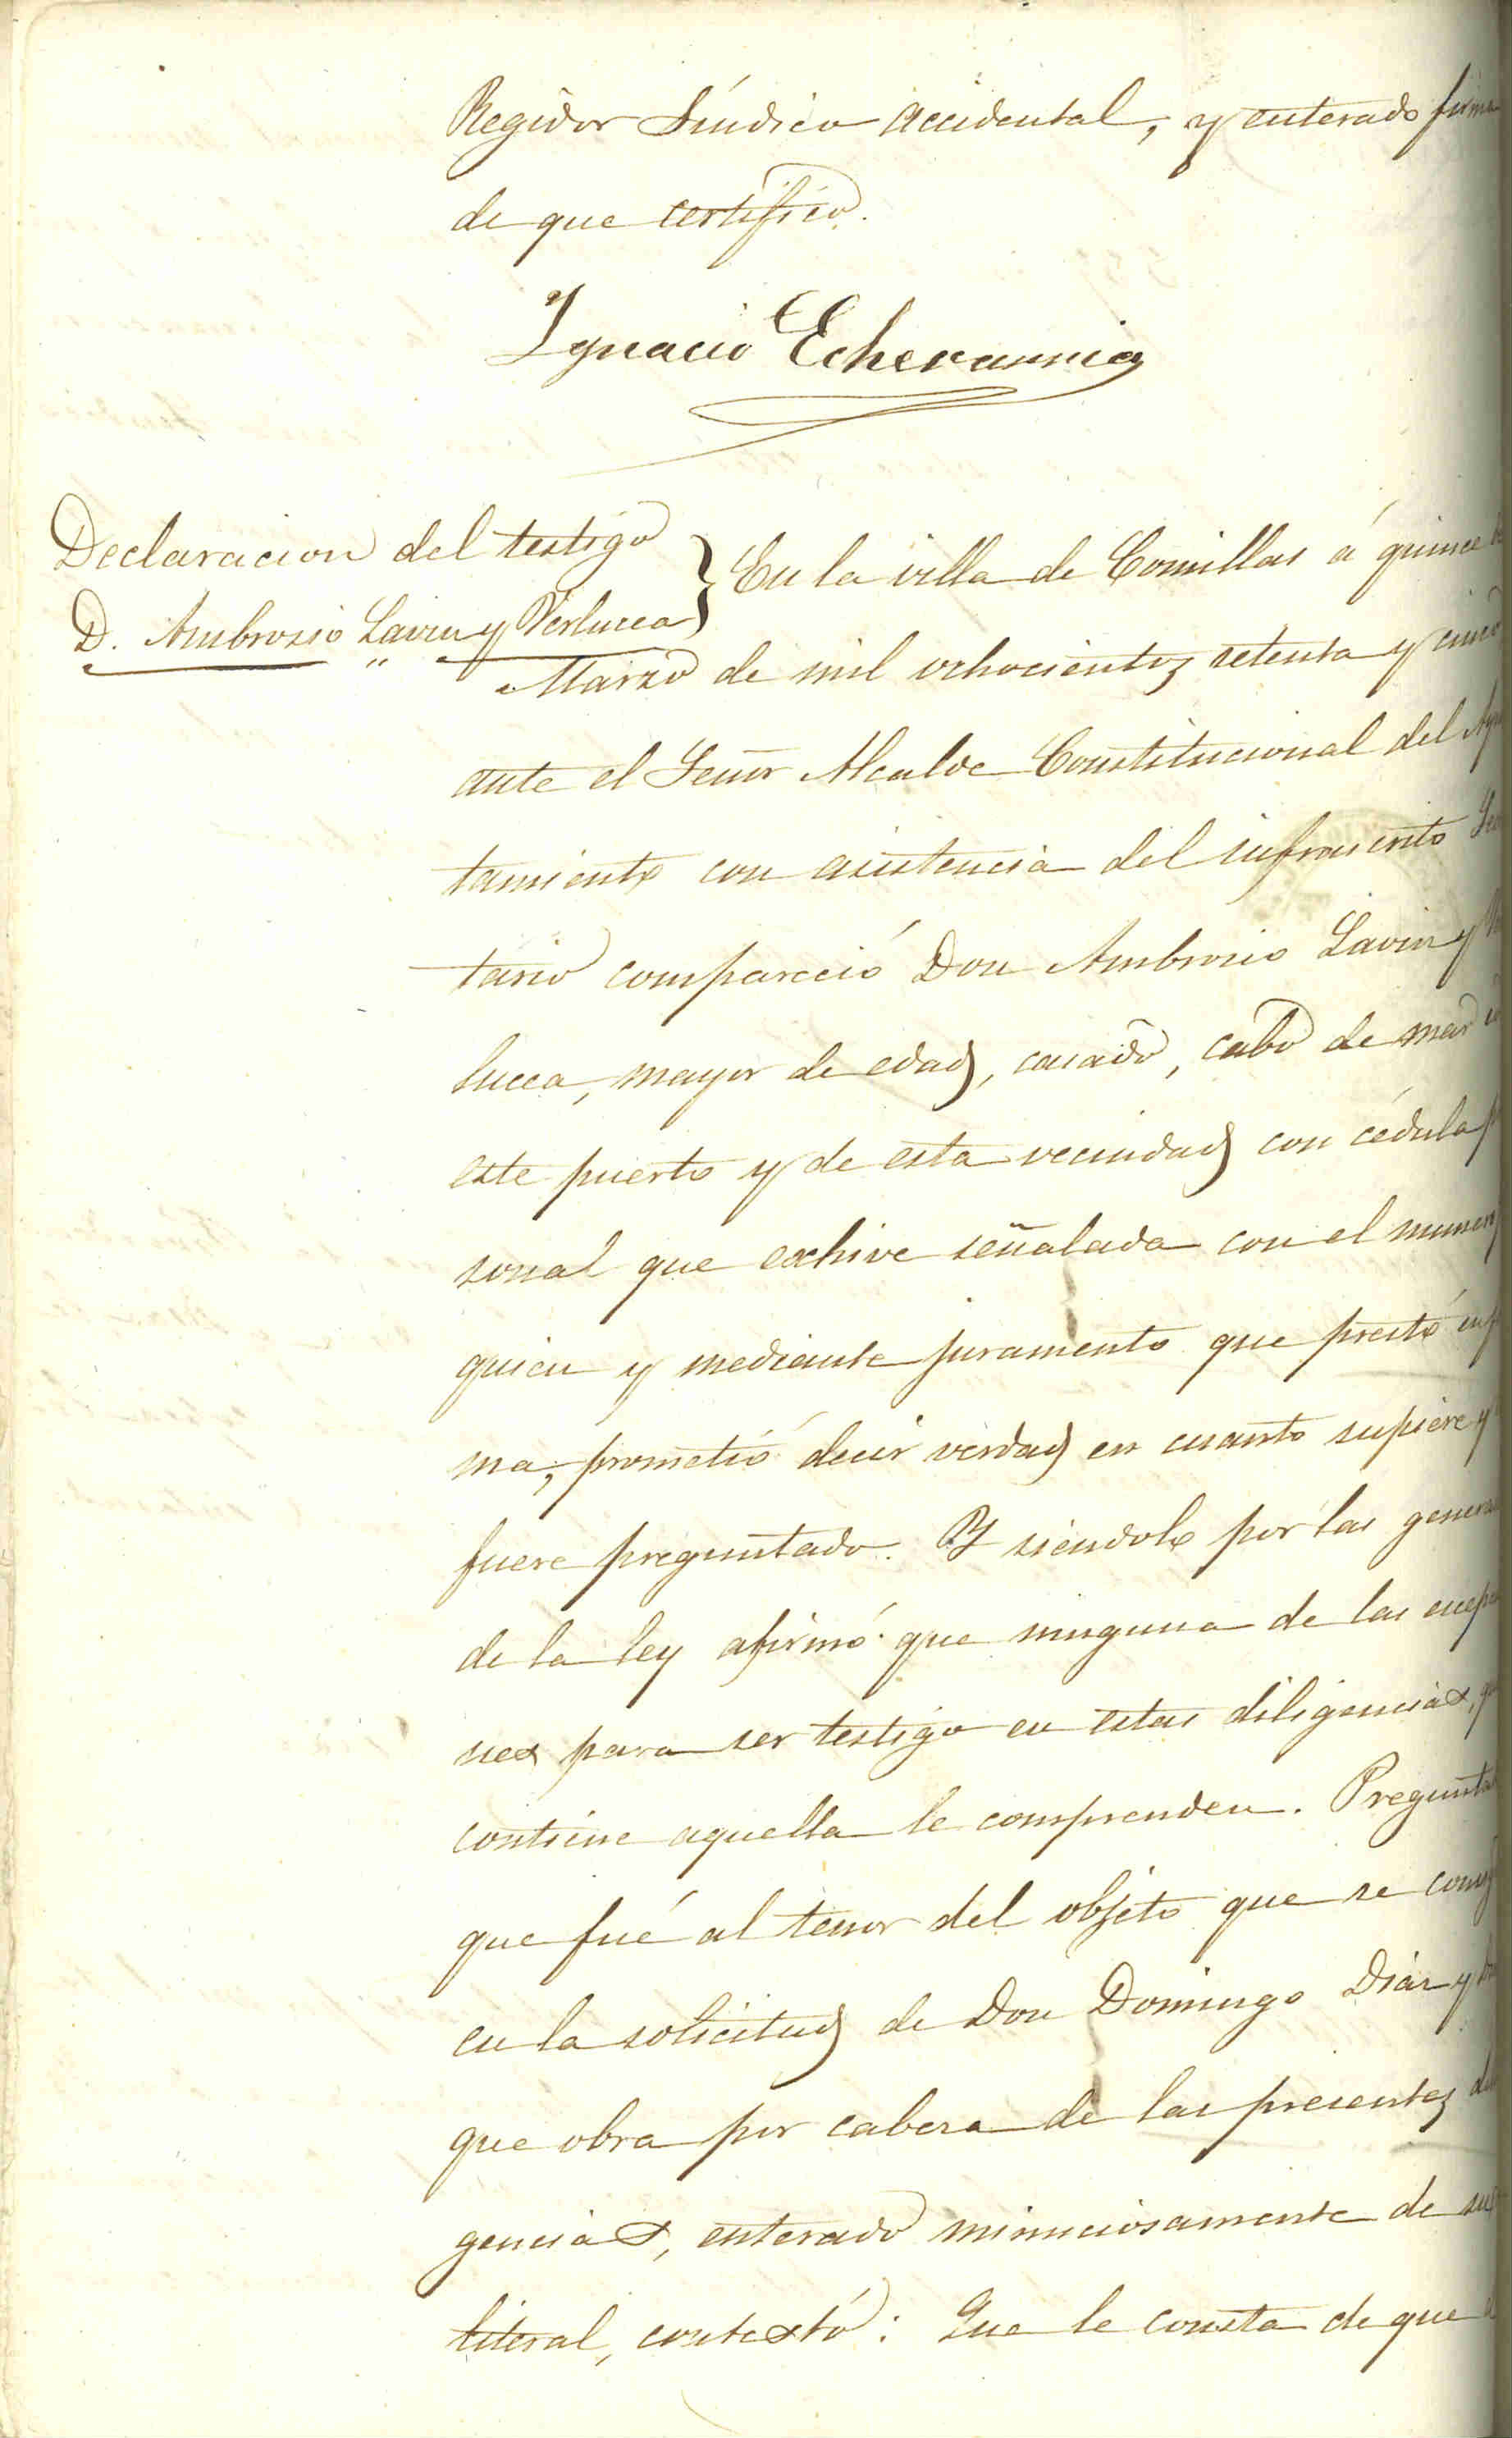 Regidor Síndico accidental, y enterado firma
de que certifico.
Ygnacio Echevarria
Declaracion del testigo
D. Ambrosio Lavin y Verlucea
En la villa de Comillas á quince de
Marzo de mil ochocientos setenta y cinco
ante el Señor Alcalde Constitucional del Ayu
tamiento con asistencia del infrascrito Secre
tario compareció Don Ambrosio Lavin y Ver
lucea, mayor de edad, casado, cabo de mar de
este puerto y de esta vecindad con cédula per
sonal que exhive señalada con el numero
quien y mediante juramento que prestó en for
ma, prometió decir verdad en cuanto supiere y
fuere preguntado. Y siendolo por las genera
de la ley afirmó que ninguna de las escepcio
nes para ser testigo en estas diligencias, que
contiene aquella le comprenden. Pregunta
que fué al tenor del objeto que se consig
en la solicitud de Don Domingo Diaz y
que obra por cabeza de las presentes dili
gencias, enterado minuciosamente de su
literal, contextó: Que le consta de que